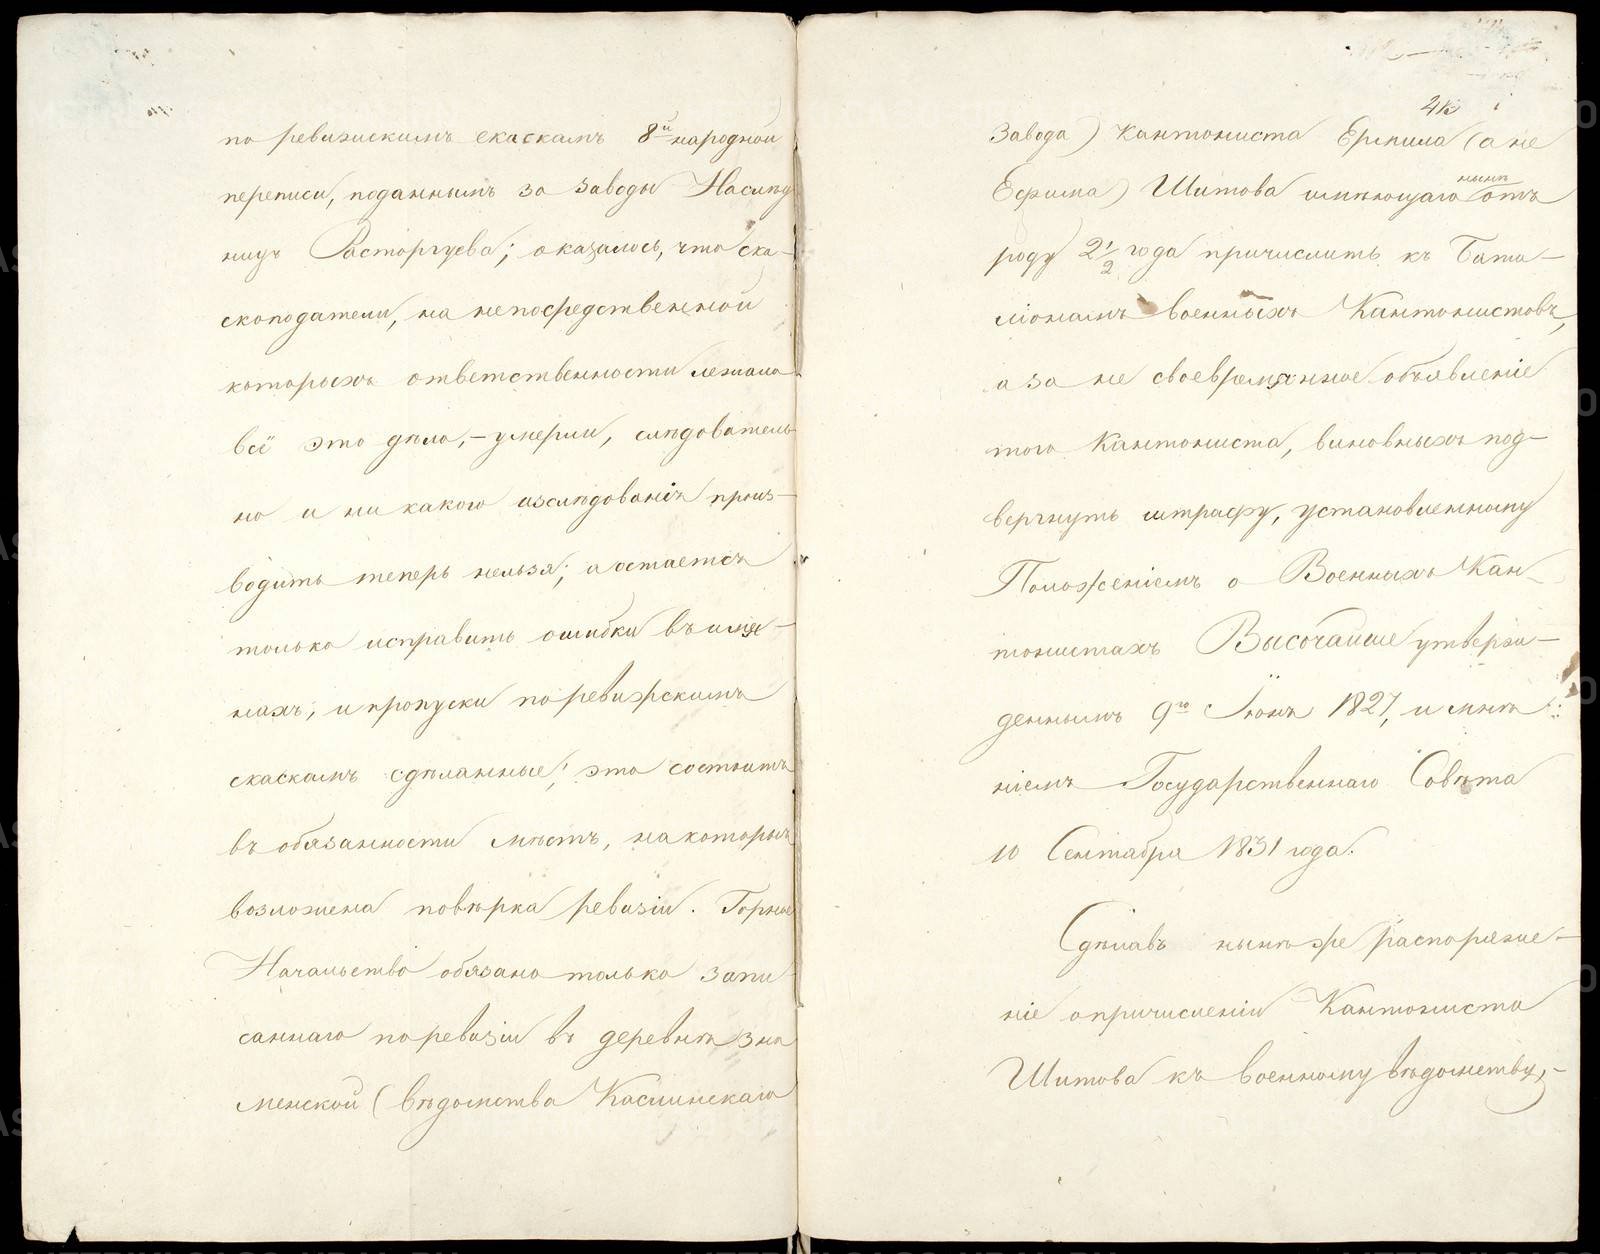 по ревизискимъ скаскамъ 8й народной
переписи, поданнымъ за заводы Наслѣд
ницъ Расторгуева; оказалось, что ска-
скоподатели, на непосредственной
которыхъ ответственности лежало
всё это дѣло, – умерли, слѣдователь
но и ни какого изслѣдованія произ-
водить теперь нельзя; а остается
только исправить ошибки въ имя-
нахъ, и пропуски по ревижскимъ
скаскамъ сдѣланные; это состоитъ
въ обязанности мѣстъ, на которыя
возложена повѣрка ревизіи. Горное
Начальство обязано только запи
саннаго по ревизіи въ деревнѣ Зна
менской (вѣдомства Каслинскаго
Завода) Кантониста Ермила (а не
Ефима) Шитова имѣющаго нынѣ отъ
роду 2 1/2 года причислить къ Бата-
ліонамъ военныхъ Кантонистовъ,
а за не своевремянное объявленіе
того Кантониста, виновныхъ под-
вергнуть штрафу, установленному
Положеніемъ о Военныхъ Кан-
тонистахъ Высочайше утверж-
деннымъ 9го Іюня 1827, и мнѣ
ніемъ Государственнаго Совѣта
10 Сентября 1831 года.
Сдѣлавъ нынѣ же распоряже-
ніе о причисленіи Кантониста
Шитова къ военному вѣдомству, –